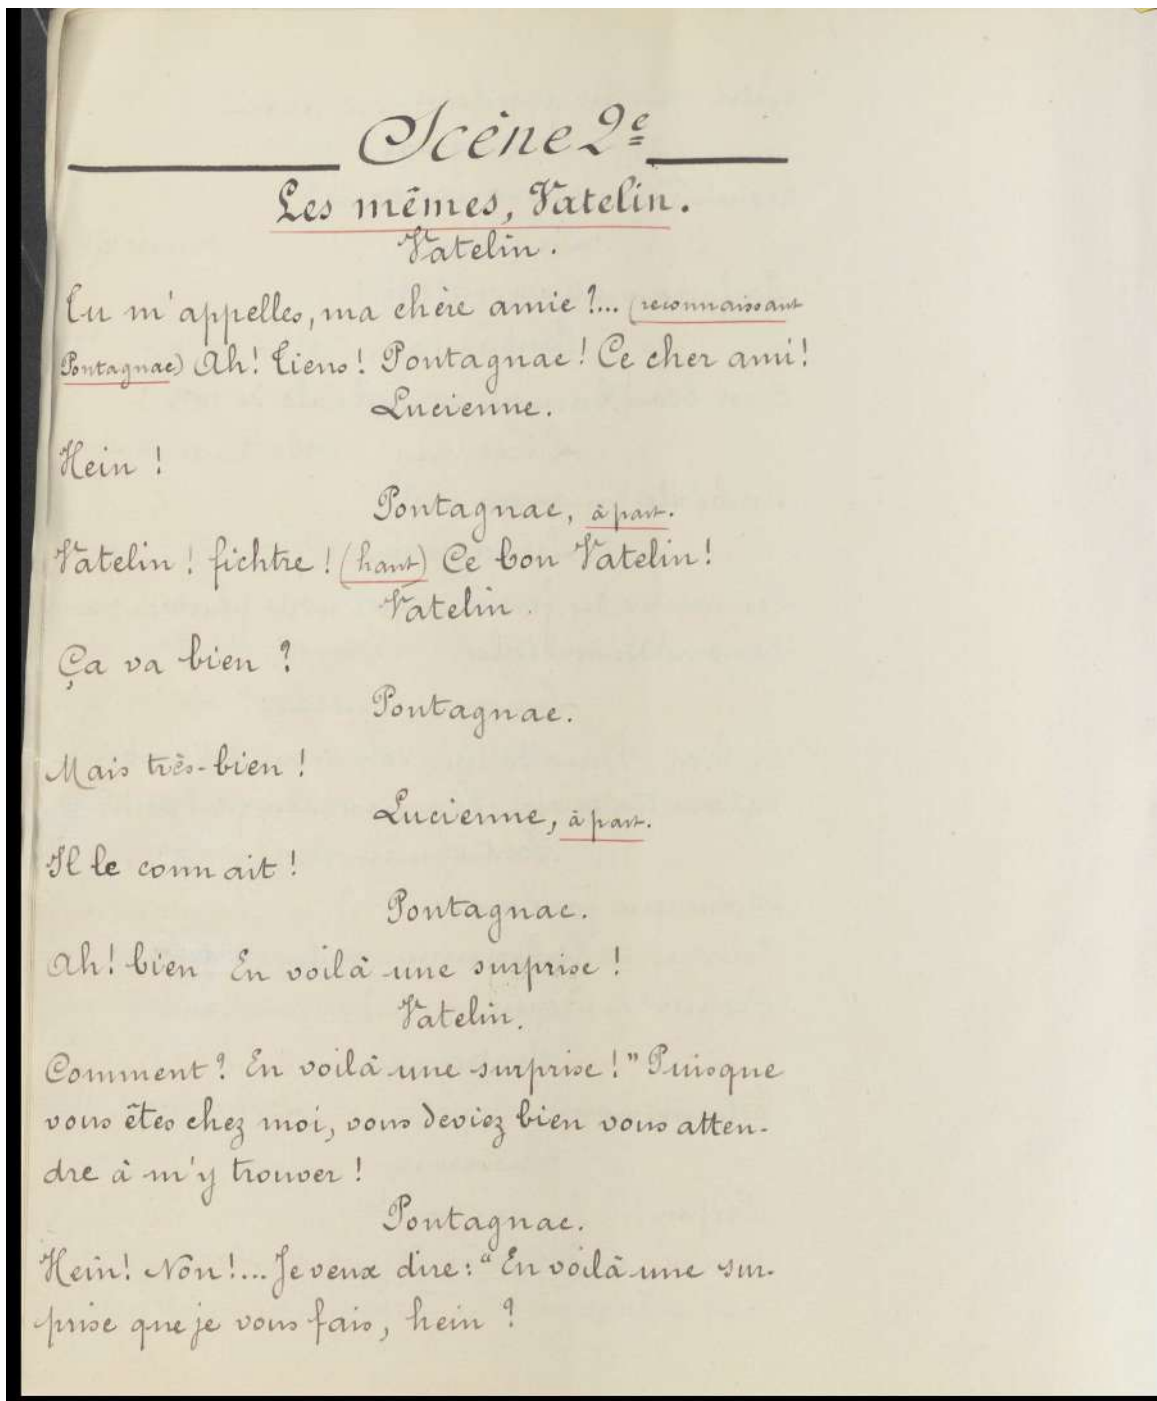 Scène 2e
Les mêmes, Vatelin.
Vatelin.
Tu m'appelles, ma chère amie ?... (reconnaissant
Pontagnac) Ah! Tiens! Pontagnac! Ce cher ami!
Lucienne.
Hein !
Pontagnac, à part.
Vatelin ! fichtre ! (haut) Ce bon Vatelin!
Vatelin.
Ça va bien ?
Pontagnac.
Mais très-bien !
Lucienne, à part.
Il le connait !
Pontagnac.
Ah! bien En voilà une surprise !
Vatelin.
Comment ? En voilà une surprise !" Puisque
vous êtes chez moi, vous deviez bien vous atten-
dre à m'y trouver !
Pontagnac.
Hein! Non!... Je veux dire: "En voilà une sur-
prise que je vous fais, hein ?